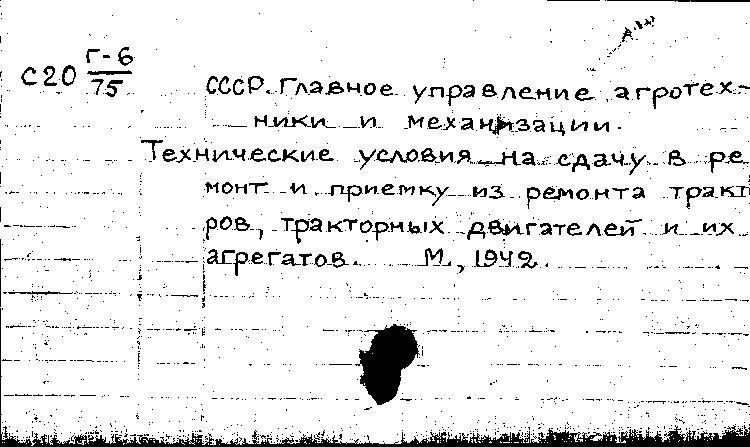 С20 Г-6
75
СССР. Главное управление агротех-
ники и механизации.
Технические условия на сдачу в ре
монт и приемку из ремонта тракт
ров, тракторных двигателей и их
агрегатов. М., 1942.